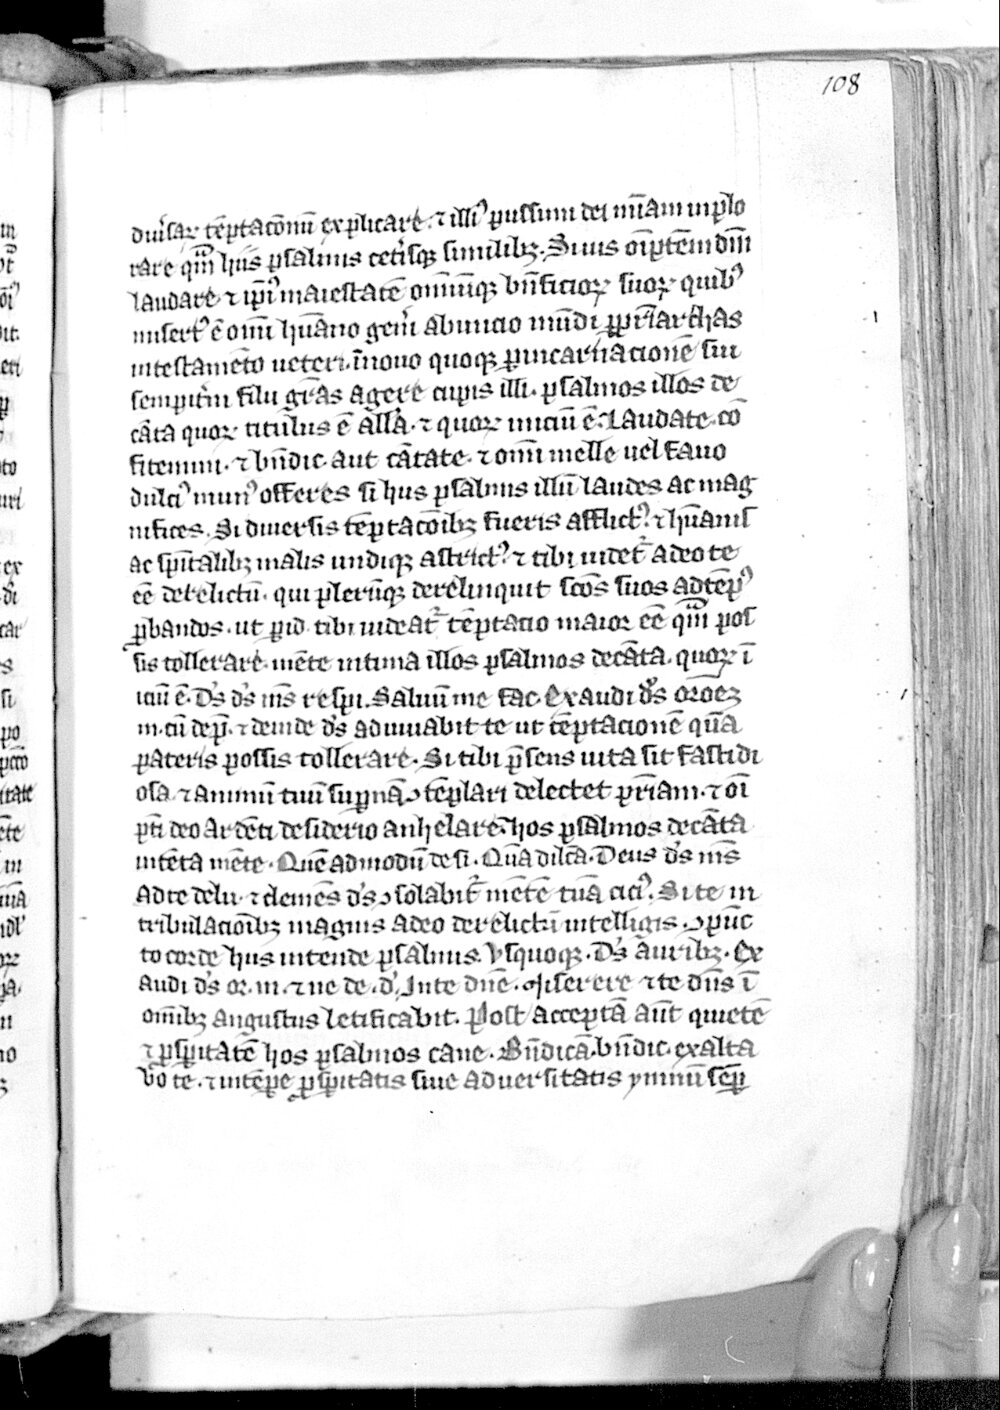 108
diu͛saꝝ tēptacōnū explicare. ⁊ illi᷒ pussimi dei mīam inplo
rare qͫm hiis psalmis cet͛isqꝫ similibꝫ. Si uis oīptēm dīm
laudare ⁊ ip̄i᷒ maiestatē omniūqꝫ bn̄ficioꝝ suoꝝ quib᷒
misert᷒ ē om̄i hūano gen͛i ab inicio mūdi ꝑ pr̄iarchas
in testamēto ueteri. ī nouo quoqꝫ ꝑ incarnacionē sui
sempit͛ni filii gr̄as agere cupis illi. psalmos illos de
cāta quoꝝ titulus ē all̄a. ⁊ quoꝝ iniciū ē. Laudate. cō
fitemini. ⁊ bn̄dic. aut cātate. ⁊ om̄i melle uel fauo
dulci᷒ mun᷒ offeres si hiis psalmis illū laudes ac mag
nifices. Si diuersis tēptacōibꝫ fueris afflict᷒. ⁊ hūanis
ac sp̄italibꝫ malis undiqꝫ astrict᷒. ⁊ tibi uidet᷑ a deo te
eē derelictū. qui plerūqꝫ derelinquit scōs suos ad tēp᷒
ꝓbandos. ut ꝑ id tibi uideat᷑ tēptacio maior eē qͫm pos
sis tollerare. mēte intima illos psalmos decāta. quoꝝ ī
iciū ē. Ds̄ ds̄ ms̄ respi. Saluū me fac. Exaudi ds̄ oroeꝫ
m. cū dep̄. ⁊ deinde ds̄ adiuuabit te ut tēptacionē quā
pateris possis tollerare. Si tibi p̄sens uita sit fastidi
osa. ⁊ animū tuū suꝑnā ꝯtēplari delectet pr̄iam. ⁊ oī
pt̄i deo ardēti desiderio anhelare. hos psalmos decāta
intēta mēte. Quē admodū desi. Quā dilc̄a. Deus ds̄ ms̄
ad te de lu. ⁊ clemēs ds̄ ꝯsolabit᷑ mētē tuā cici᷒. Si te in
tribulaciōibꝫ magnis a deo derelictū intelligis. ꝯpūc
to corde hiis intende psalmis. Vsquoqꝫ. Ds̄ aurībꝫ. Ex
audi ds̄ or. m. ⁊ ne de. d᷒. In te dn̄e. Miserere ⁊ te dn̄s ī
om̄ibꝫ angustiis letificabit. Post acceptā aūt quietē
⁊ ꝓsꝑitatē hos psalmos cane. Bn̄dicā. bn̄dic. exalta
bo te. ⁊ in tēpe ꝓsꝑitatis siue aduersitatis ymnū semꝑ